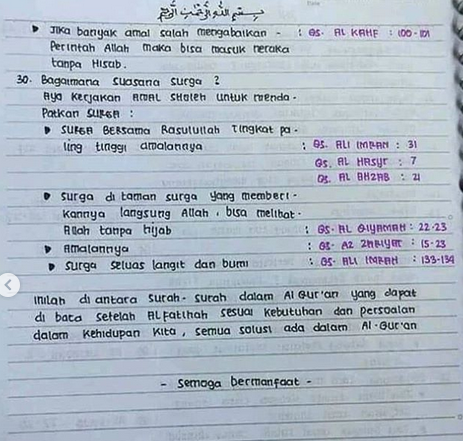 بسم الله الرحمن الرحيم
Jika banyak amal salah mengabaikan - : QS. AL KAHF : 100-101
Perintah Allah maka bisa masuk neraka
tanpa Hisab.
30. Bagaimana suasana surga ?
Ayo kerjakan AMAL SHOLEH untuk menda-
Patkan SURGA :
SURGA BERSAMA Rasulullah Tingkat pa-
ling tinggi amalannya : QS. ALI IMRAN : 31
QS. AL HASYR : 7
QS. AL AHZAB : 21
Surga di taman surga yang memberi-
kannya langsung Allah, bisa melihat-
Allah tanpa hijab : QS. AL QIYAMAH : 22-23
Amalannya : QS. AZ ZARIYAT : 15-23
Surga seluas langit dan bumi : QS. ALI IMRAN : 133-134
Inilah di antara surah-surah dalam Al Qur'an yang dapat
di baca setelah AL Fatihah sesuai kebutuhan dan persoalan
dalam kehidupan kita, semua solusi ada dalam Al-Qur'an
- Semoga bermanfaat -